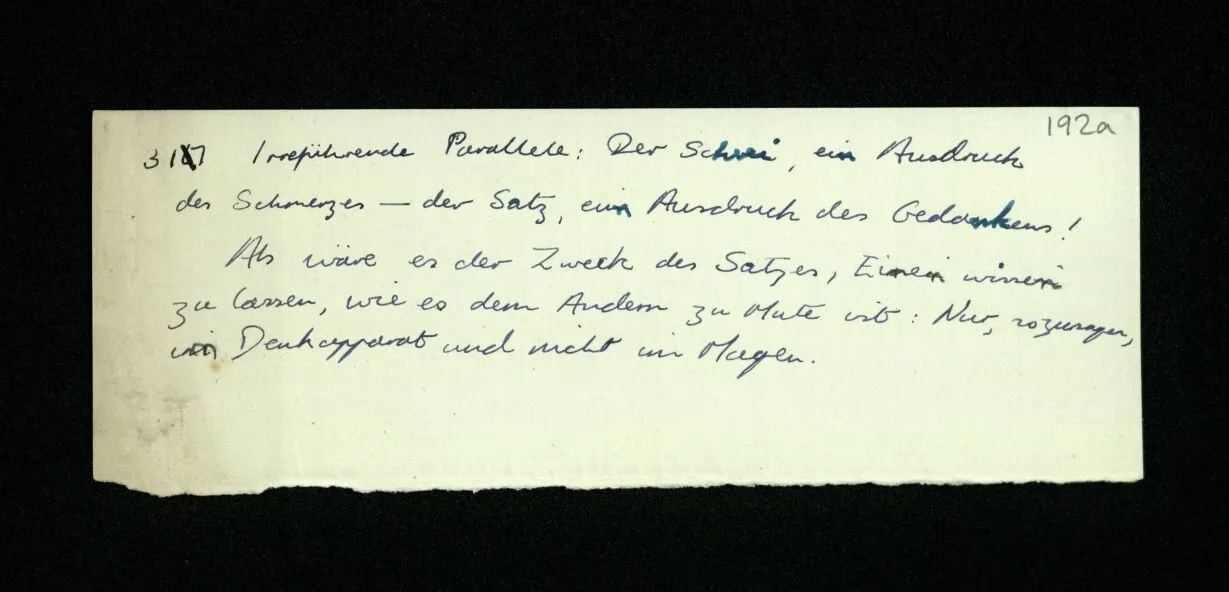 192a
317 Irreführende Parallele: Der Schrei, ein Ausdruck
des Schmerzes — der Satz, ein Ausdruck des Gedankens!
Als wäre es der Zweck des Satzes, Einen wissen
zu lassen, wie es dem Andern zu Mute ist: Nur, sozusagen,
im Denkapparat und nicht im Magen.